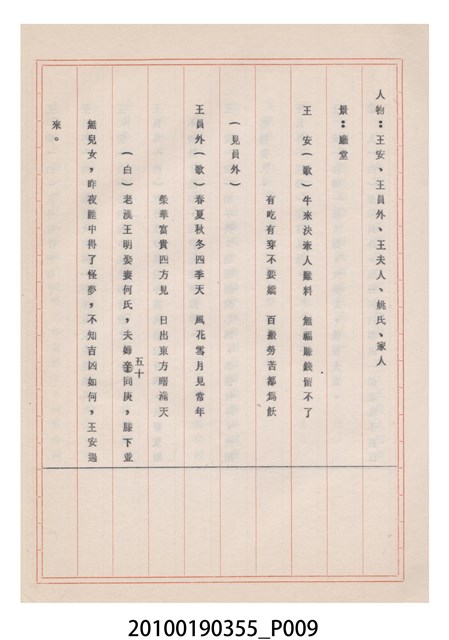 人物：王安、王員外、王夫人、姚氏、家人
景：廳堂
王　安（歌）牛來決牽人難料　無福賺錢留不了
有吃有穿不要嫌　百般勞苦都為飫
（見員外）
王員外（歌）春夏秋冬四季天　風花雪月見當年
榮華富貴四方見　日出東方曜滿天
（白）老漢王明娶妻何氏，夫婦五十同庚，膝下並
無兒女，昨夜睡中得了怪夢，不知吉凶如何，王安過
來。
20100190355_P009